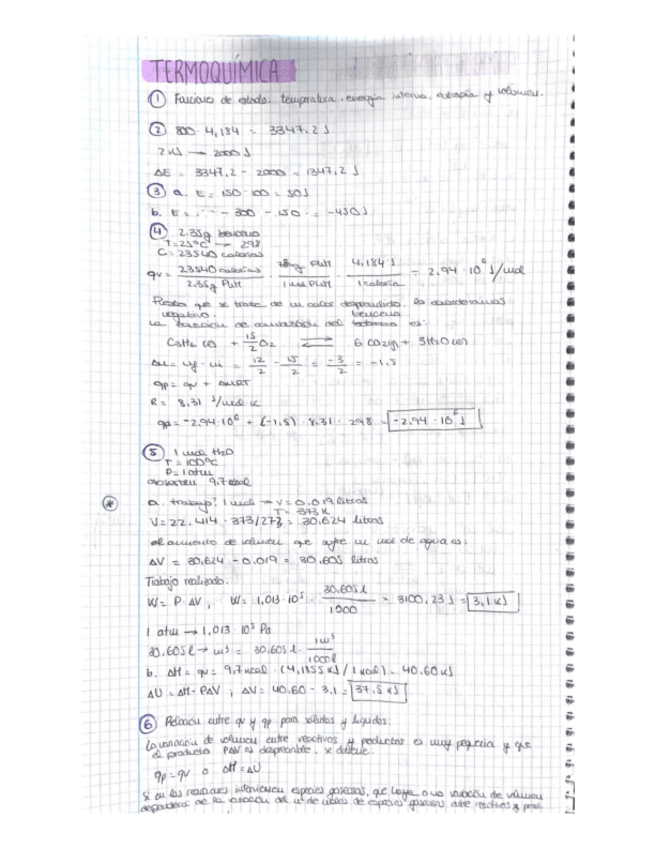 TERMOQUÍMICA
① Funciones de estado: temperatura, energía interna, entropía y volumen.
② 800 · 4,184 = 3347,2 J
2 kJ → 2000 J
ΔE = 3347,2 - 2000 = 1347,2 J
③ a. E = 150 - 100 = 50 J
b. E = - 300 - 150 = -450 J
④ 2.35g benceno
T = 25ºC → 298
C = 23540 calorías
qv = 23540 calorías / 2.35g PuH · 78g PuH / 1 mol PuH · 4,184 J / 1 caloría = 2.94 · 10⁶ J/mol
Puesto que se trata de un calor desprendido, lo consideramos
negativo.
benceno
La reacción de combustión del es:
C6H6 (l) + 15/2 O2 ⇄ 6 CO2(g) + 3H2O(l)
Δn = nf - ni = 12/2 - 15/2 = -3/2 = -1,5
qp = qv + ΔnRT
R = 8,31 J/mol·K
qp = -2,94·10⁶ + (-1,5) · 8,31 · 298 = -2,94 · 10⁶ J
⑤ 1 mol H2O
T = 100ºC
P = 1 atm
absorben 9,7 kcal
a. trabajo? 1 mol → V = 0.019 litros
T = 373 K
V = 22.414 · 373/273 = 30,624 litros
el aumento de volumen que sufre un mol de agua es:
ΔV = 30,624 - 0.019 = 30,605 litros
Trabajo realizado:
W = P · ΔV ; W = 1,013 · 10⁵ · 30,605 l / 1000 = 3100,23 J = 3,1 kJ
1 atm → 1,013 · 10⁵ Pa
30.605 l → m³ = 30.605 l · 1m³ / 1000 l
b. ΔH = qv = 9,7 kcal · (4,1855 kJ / 1 kcal) = 40.60 kJ
ΔU = ΔH - PΔV ; ΔV = 40.60 - 3,1 = 37.5 kJ
⑥ Relación entre qv y qp para sólidos y líquidos:
La variación de volumen entre reactivos y productos es muy pequeña y que
el producto PΔV es despreciable, se deduce
qp = qv o ΔH = ΔU
Si en las reacciones intervienen especies gaseosas, que haya o no variación de volumen
dependerá de la variación del nº de moles de especies gaseosas entre reactivos y prod.